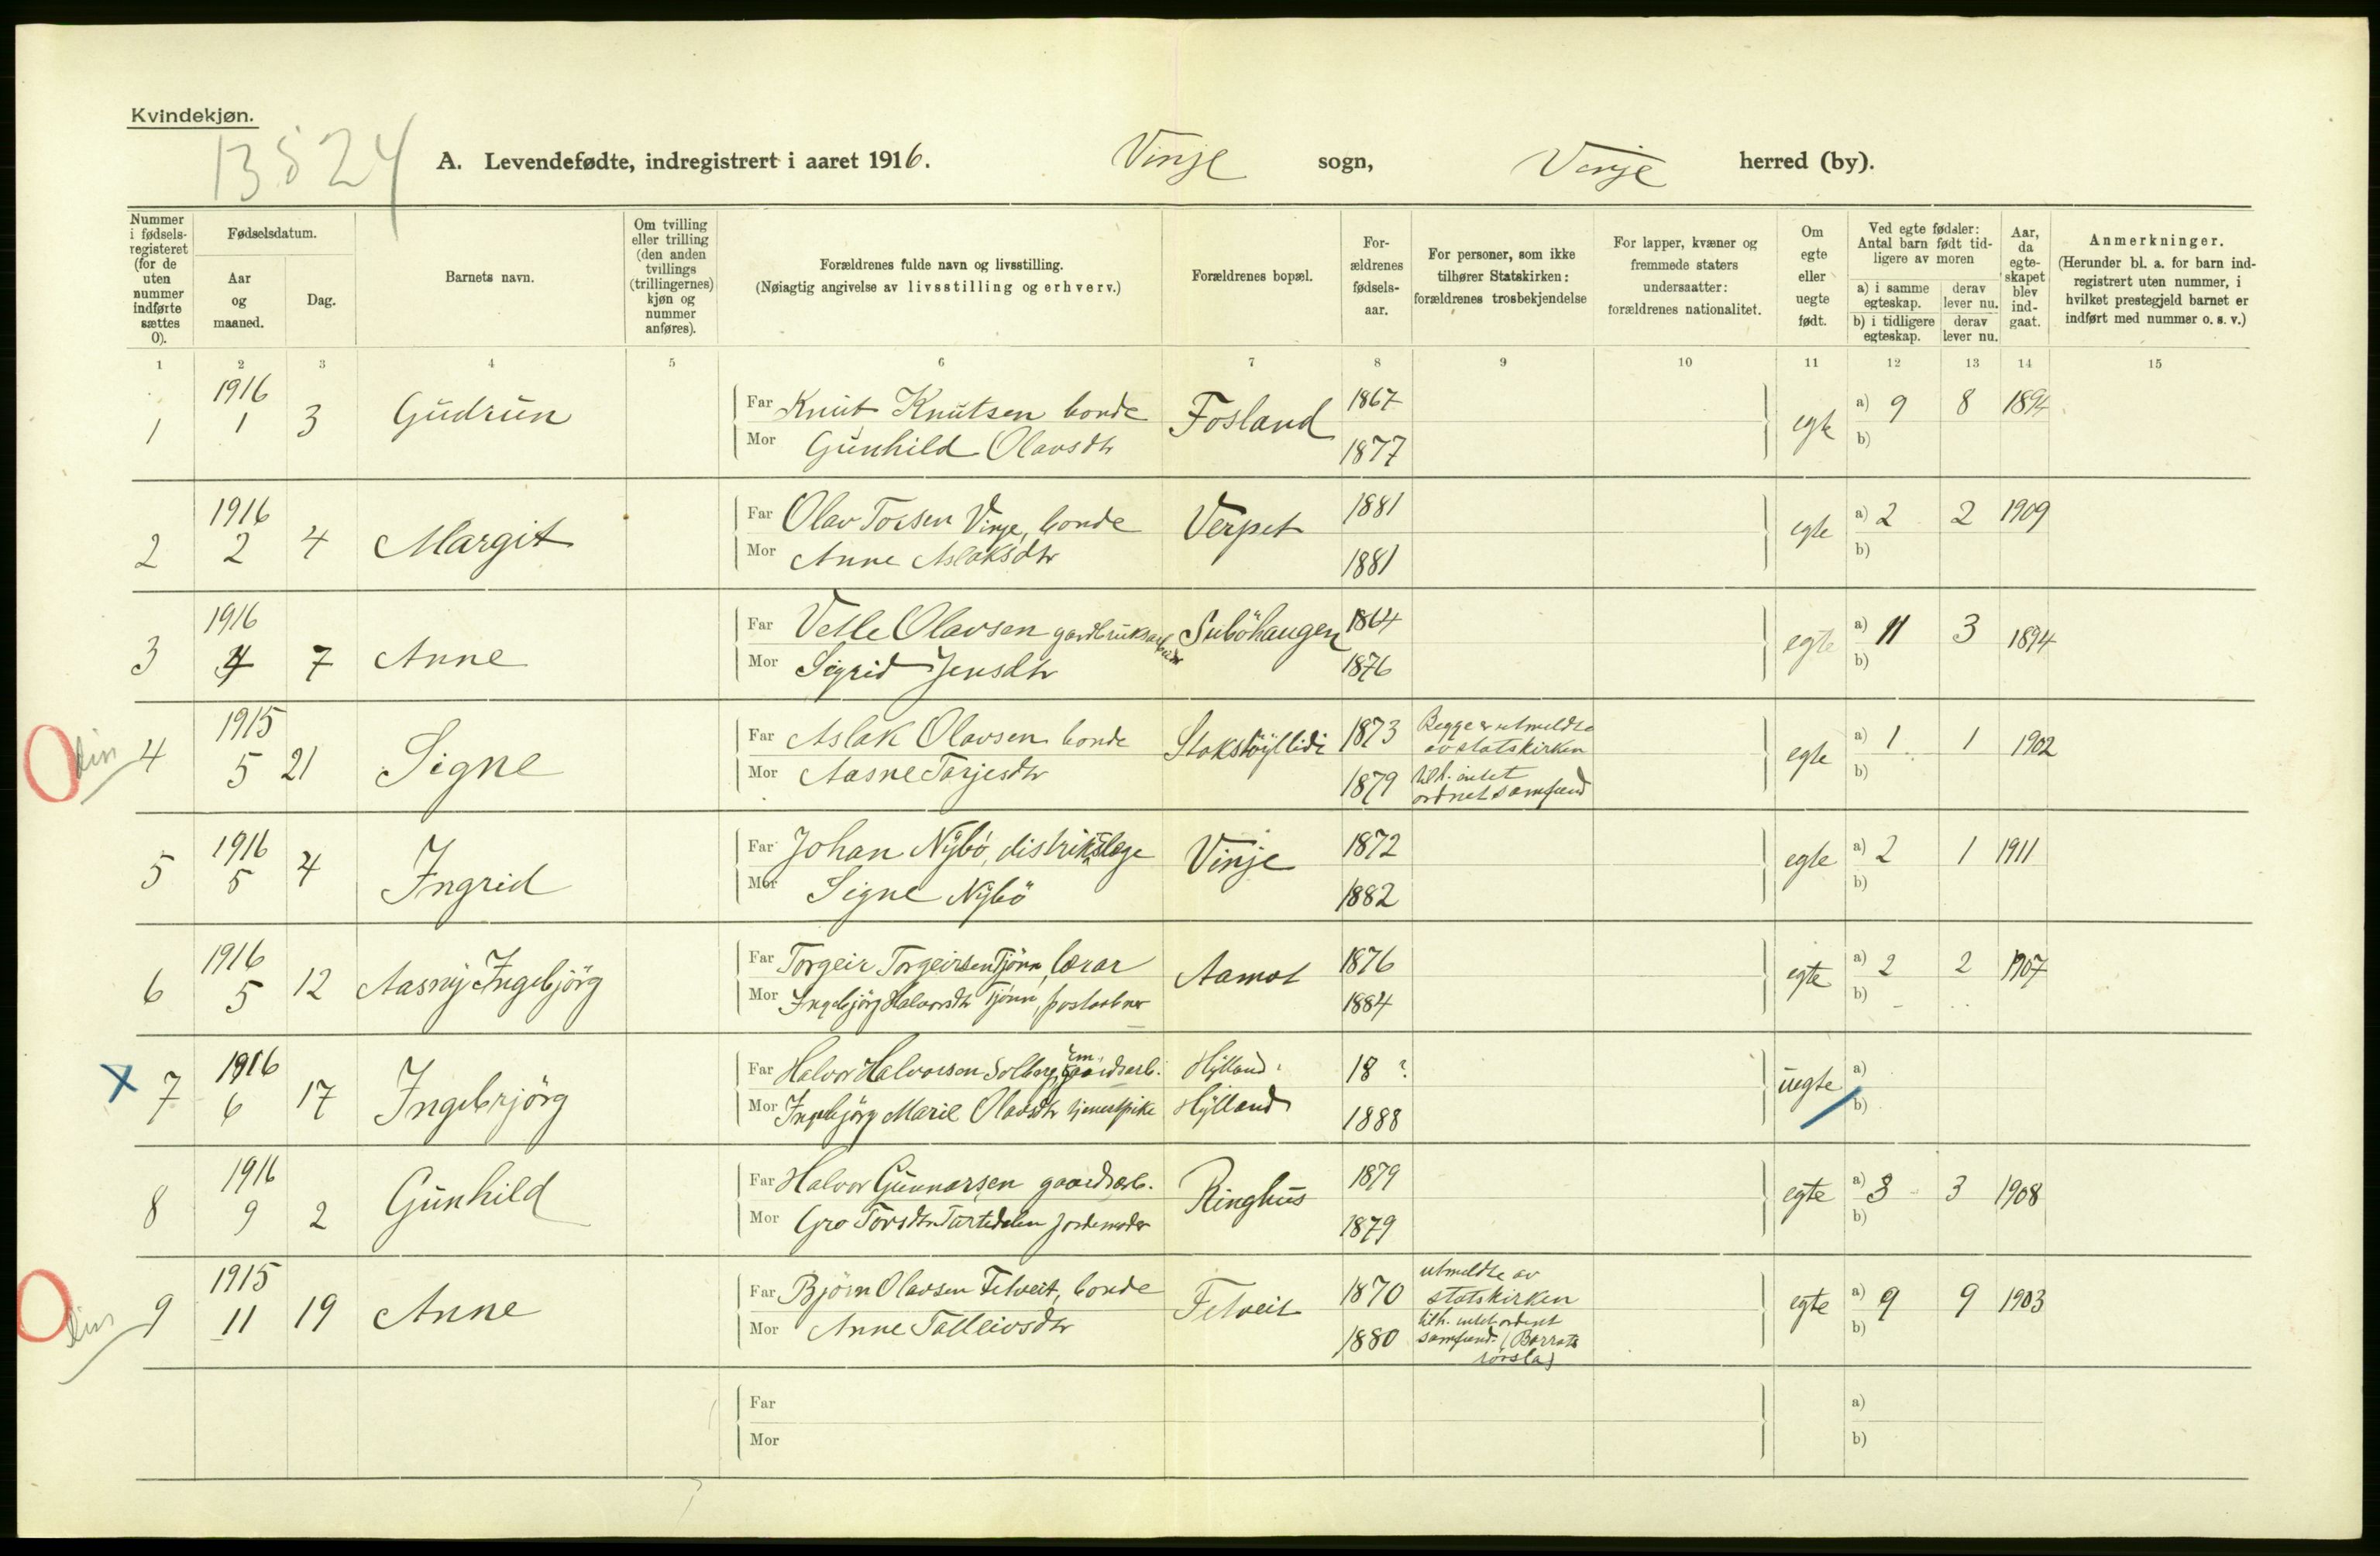 Kvindekjøn.
13524
A. Levendefødte, indregistrert i aaret 1916. Vinje sogn, Vinje herred (by).
Nummer i fødsels-registeret (for de uten nummer indførte sættes 0).
Fødselsdatum.
Aar og maaned.
Dag.
Barnets navn.
Om tvilling eller trilling (den anden tvillings (trillingernes) kjøn og nummer anføres).
Forældrenes fulde navn og livsstilling.
(Nøiagtig angivelse av livsstilling og erhverv.)
Forældrenes bopæl.
For-ældrenes fødsels-aar.
For personer, som ikke tilhører Statskirken: forældrenes trosbekjendelse
For lapper, kvæner og fremmede staters undersaatter: forældrenes nationalitet.
Om egte eller uegte født.
Ved egte fødsler: Antal barn født tid-ligere av moren
a) i samme egteskap. derav lever nu.
b) i tidligere egteskap. derav lever nu.
Aar, da egte-skapet blev ind-gaat.
Anmerkninger.
(Herunder bl. a. for barn ind-registrert uten nummer, i hvilket prestegjeld barnet er indført med nummer o. s. v.)
1 2 3 4 5 6 7 8 9 10 11 12 13 14 15
1 1916 1 3 Gudrun Far Knut Knutsen bonde Fosland 1867 egte a) 9 8 1894
Mor Gunhild Olavsdtr 1877 b)
2 1916 2 4 Margit Far Olav Torsen Vinje, bonde Verpet 1881 egte a) 2 2 1909
Mor Anne Aslaksdtr 1881 b)
3 1916 4 7 Anne Far Vetle Olavsen gardbruksarbeider Suböhaugen 1864 egte a) 11 3 1894
Mor Sigrid Jensdtr 1876 b)
4 1915 5 21 Signe Far Aslak Olavsen bonde 1873 Begge er utmeldte av statskirken egte a) 1 1 1902
Mor Aasne Tarjesdtr 1879 tilh. intet ordnet samfund b)
5 1916 5 4 Ingrid Far Johan Nybö, distriktslæge Vinje 1872 egte a) 2 1 1911
Mor Signe Nybö 1882 b)
6 1916 5 12 Aasny Ingebjörg Far Torgeir Torgeirsen Tjönn, lærar Aamot 1876 egte a) 2 2 1907
Mor Ingebjörg Halvorsdtr Tjönn, postaabner 1884 b)
x 7 1916 6 17 Ingebrjörg Far Halvor Halvorsen Solberg, em, gaardsarb. Hylland 18 ? uegte a)
Mor Ingebjörg Marie Olavsdtr tjenestpike Hylland 1888 b)
8 1916 9 2 Gunhild Far Halvor Gunnarsen gaardsarb. Ringhus 1879 egte a) 3 3 1908
Mor Gro Torsdtr jordemoder 1879 b)
9 1915 11 19 Anne Far Björn Olavsen Felveit, bonde Felveit 1870 utmeldte av statskirken egte a) 9 9 1903
Mor Anne Talleivsdtr 1880 tilh. intet ordent samfund. b)
Far a)
Mor b)